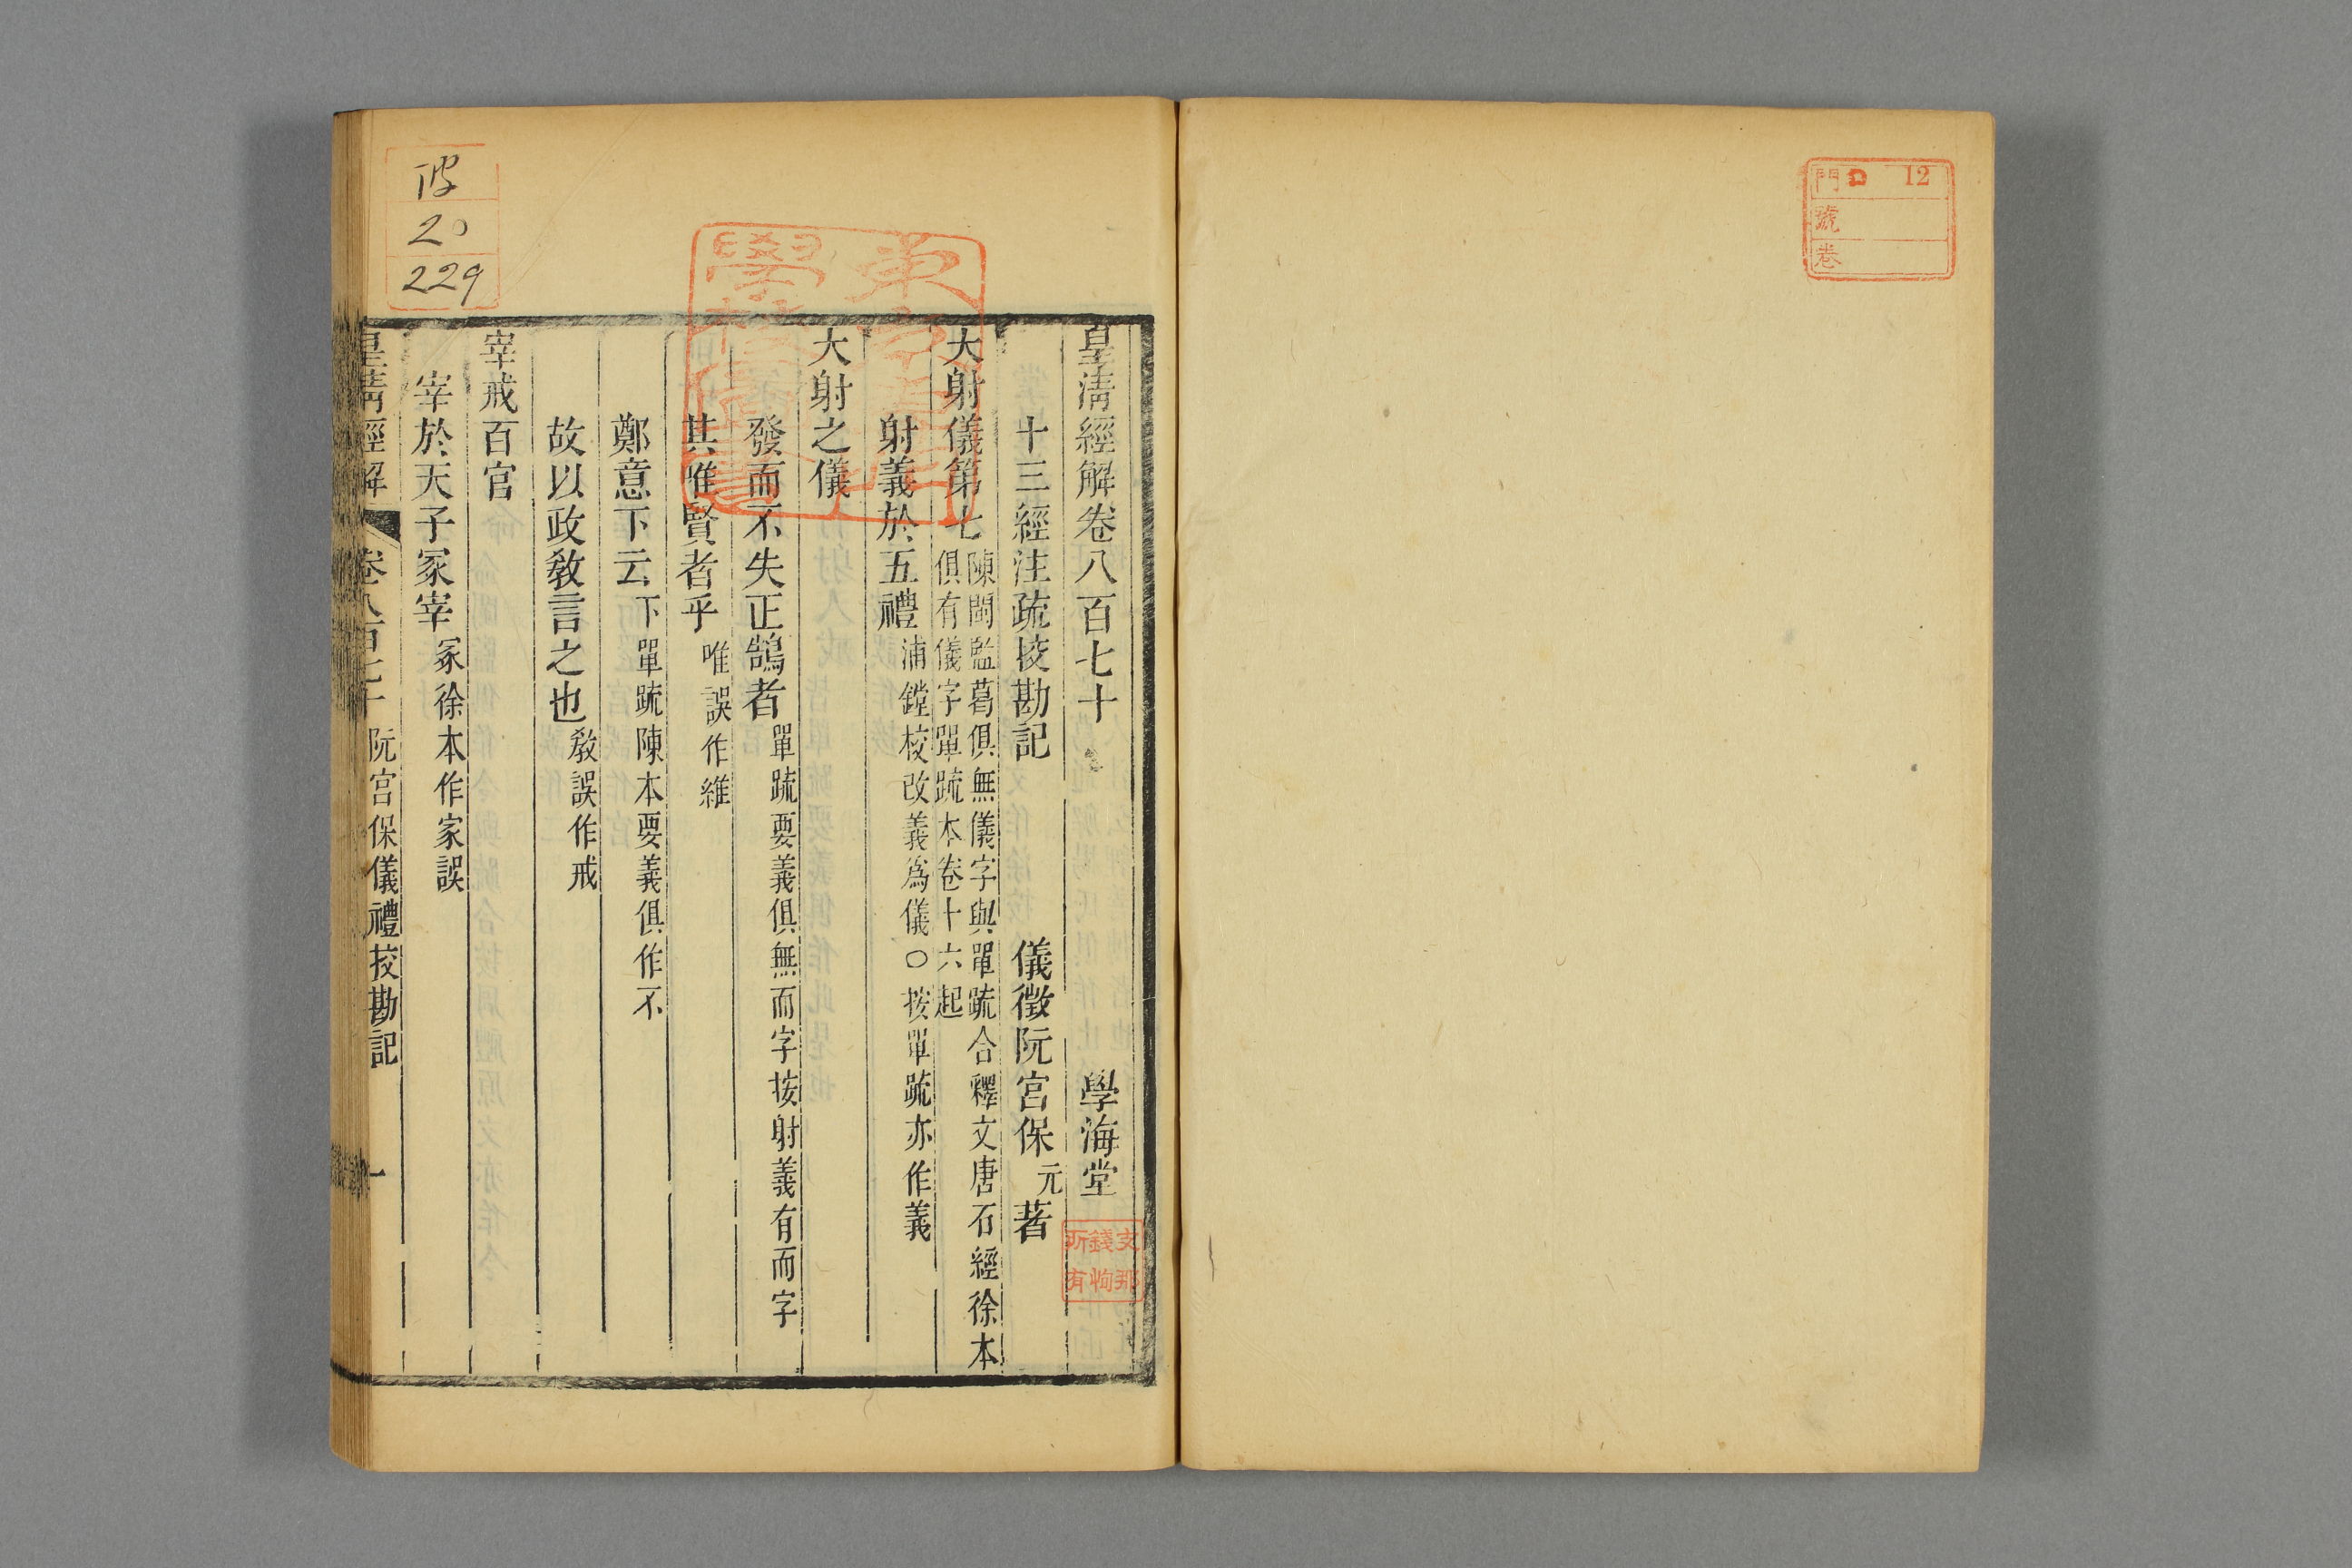 門 12
號
卷
皇淸經解卷八百七十
學海堂
十三經注疏挍勘記
儀徵阮宮保元著
大射儀第七陳閩監葛俱無儀字與單疏合釋文唐石經徐本
俱有儀字單疏本卷十六起
射義於五禮浦鏜校改義爲儀○按單疏亦作義
大射之儀
發而不失正鵠者單疏要義俱無而字按射義有而字
其唯賢者乎唯誤作維
鄭意下云下單疏陳本要義俱作不
故以政敎言之也敎誤作戒
宰戒百官
宰於天子冢宰冢徐本作家誤
皇淸經解
卷八百七十 阮宮保儀禮挍勘記
一
支那
錢恂
所有
20
229